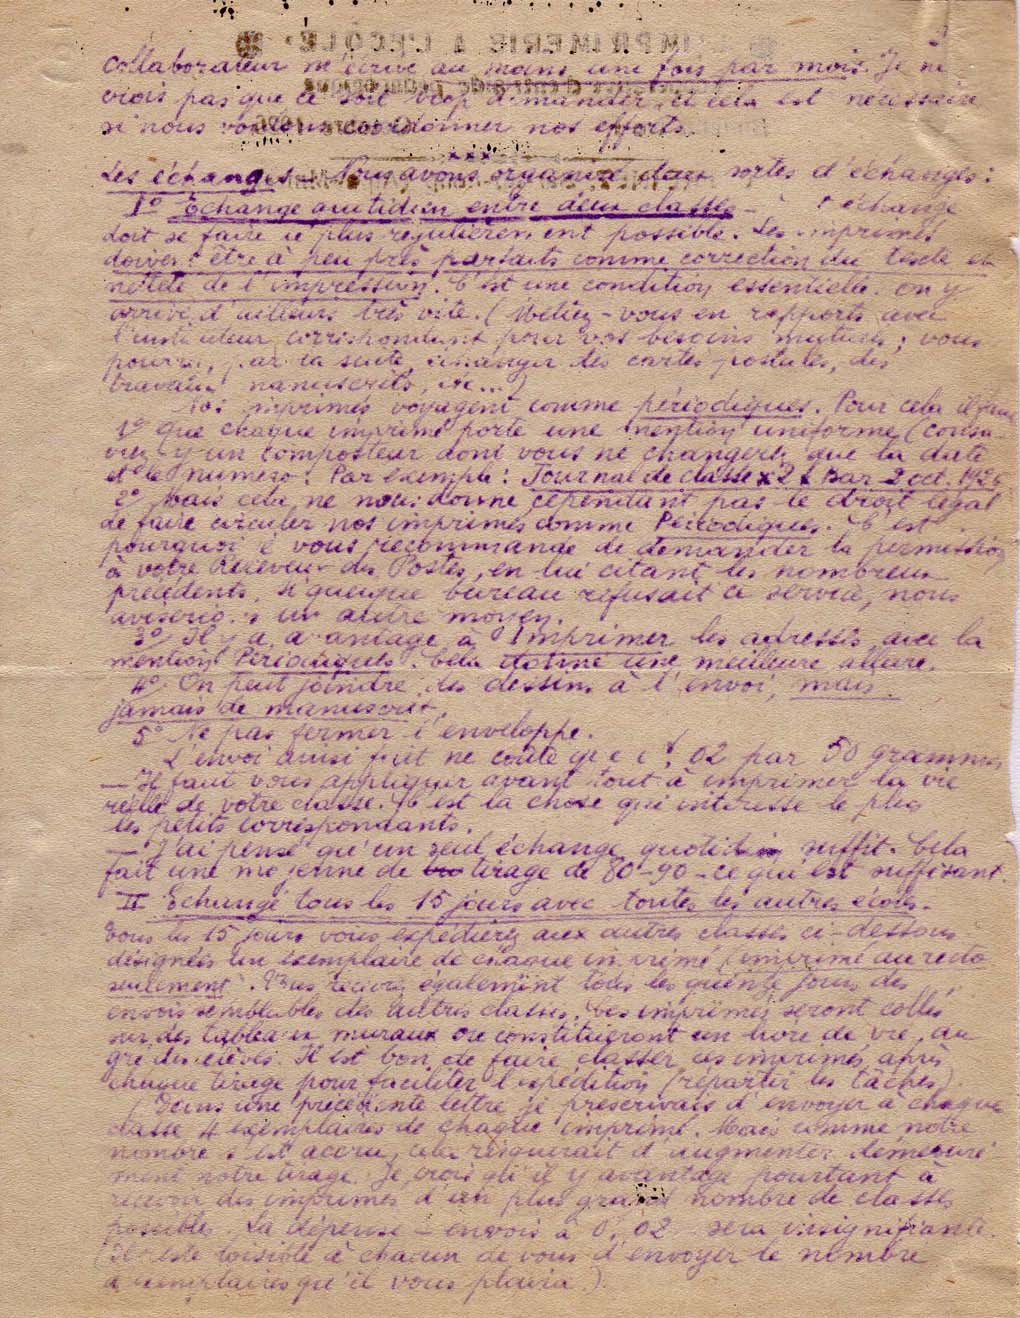 collaborateur m'écrive au moins une fois par mois. Je ne
crois pas que ce soit trop demander, et cela est nécessaire
si nous voulons coordonner nos efforts.
xxx
Les échanges - Nous avons organisé deux sortes d'échanges :
I° Echange quotidien entre deux classes - L'échange
doit se faire le plus régulièrement possible. Les imprimés
doivent être à peu près parfaits comme correction du texte et
netteté de l'impression. C'est une condition essentielle. On y
arrive d'ailleurs très vite. (Mettez-vous en rapports avec
l'instituteur correspondant pour vos besoins mutuels ; vous
pourrez, par la suite, échanger des cartes postales, des
travaux manuscrits, etc...)
Nos imprimés voyagent comme périodiques. Pour cela il faut
1° que chaque imprimé porte une mention uniforme (
y un composteur dont vous ne changerez que la date
et le numéro : Par exemple : Journal de classe x 2 x Bar 2 oct. 1926
2° Mais cela ne nous donne cependant pas le droit légal
de faire circuler nos imprimés comme Périodiques. C'est
pourquoi je vous recommande de demander la permission
à votre Receveur des Postes, en lui citant les nombreux
précédents. Si quelque bureau refusait ce service, nous
aviserions un autre moyen.
3° Il y a avantage à imprimer les adresses avec la
mention Périodiques. Cela donne une meilleure allure.
4° On peut joindre des dessins à l'envoi, mais
jamais de manuscrit.
5° Ne pas fermer l'enveloppe.
L'envoi ainsi fait ne coûte que 0f,02 par 50 grammes
- Il faut vous appliquer avant tout à imprimer la vie
réelle de votre classe. C'est la chose qui intéresse le plus
les petits correspondants.
- J'ai pensé qu'un seul échange quotidien suffit. Cela
fait une moyenne de tirage de 80-90 - ce qui est suffisant.
II Echange tous les 15 jours avec toutes les autres écoles.
Tous les 15 jours vous expédierez aux autres classes ci-dessous
désignées un exemplaire de chaque imprimé (imprimé au recto
seulement). Vous recevrez également tous les quinze jours des
envois semblables des autres classes. Ces imprimés seront collés
sur des tableaux muraux ou constitueront un livre de vie, au
gré des élèves. Il est bon de faire classer ces imprimés après
chaque tirage pour faciliter l'expédition (répartir les tâches).
(Dans une précédente lettre je prescrivais d'envoyer à chaque
classe 4 exemplaires de chaque imprimé. Mais comme notre
nombre s'est accru, cela risquerait d'augmenter démesuré
ment notre tirage. Je crois qu'il y avantage pourtant à
recevoir des imprimés d'un plus grand nombre de classes
possibles. La dépense - envois à 0,02 sera insignifiante.
(Il est loisible à chacun de vous d'envoyer le nombre
d'exemplaires qu'il vous plaira.)
L'IMPRIMERIE A L'ECOLE